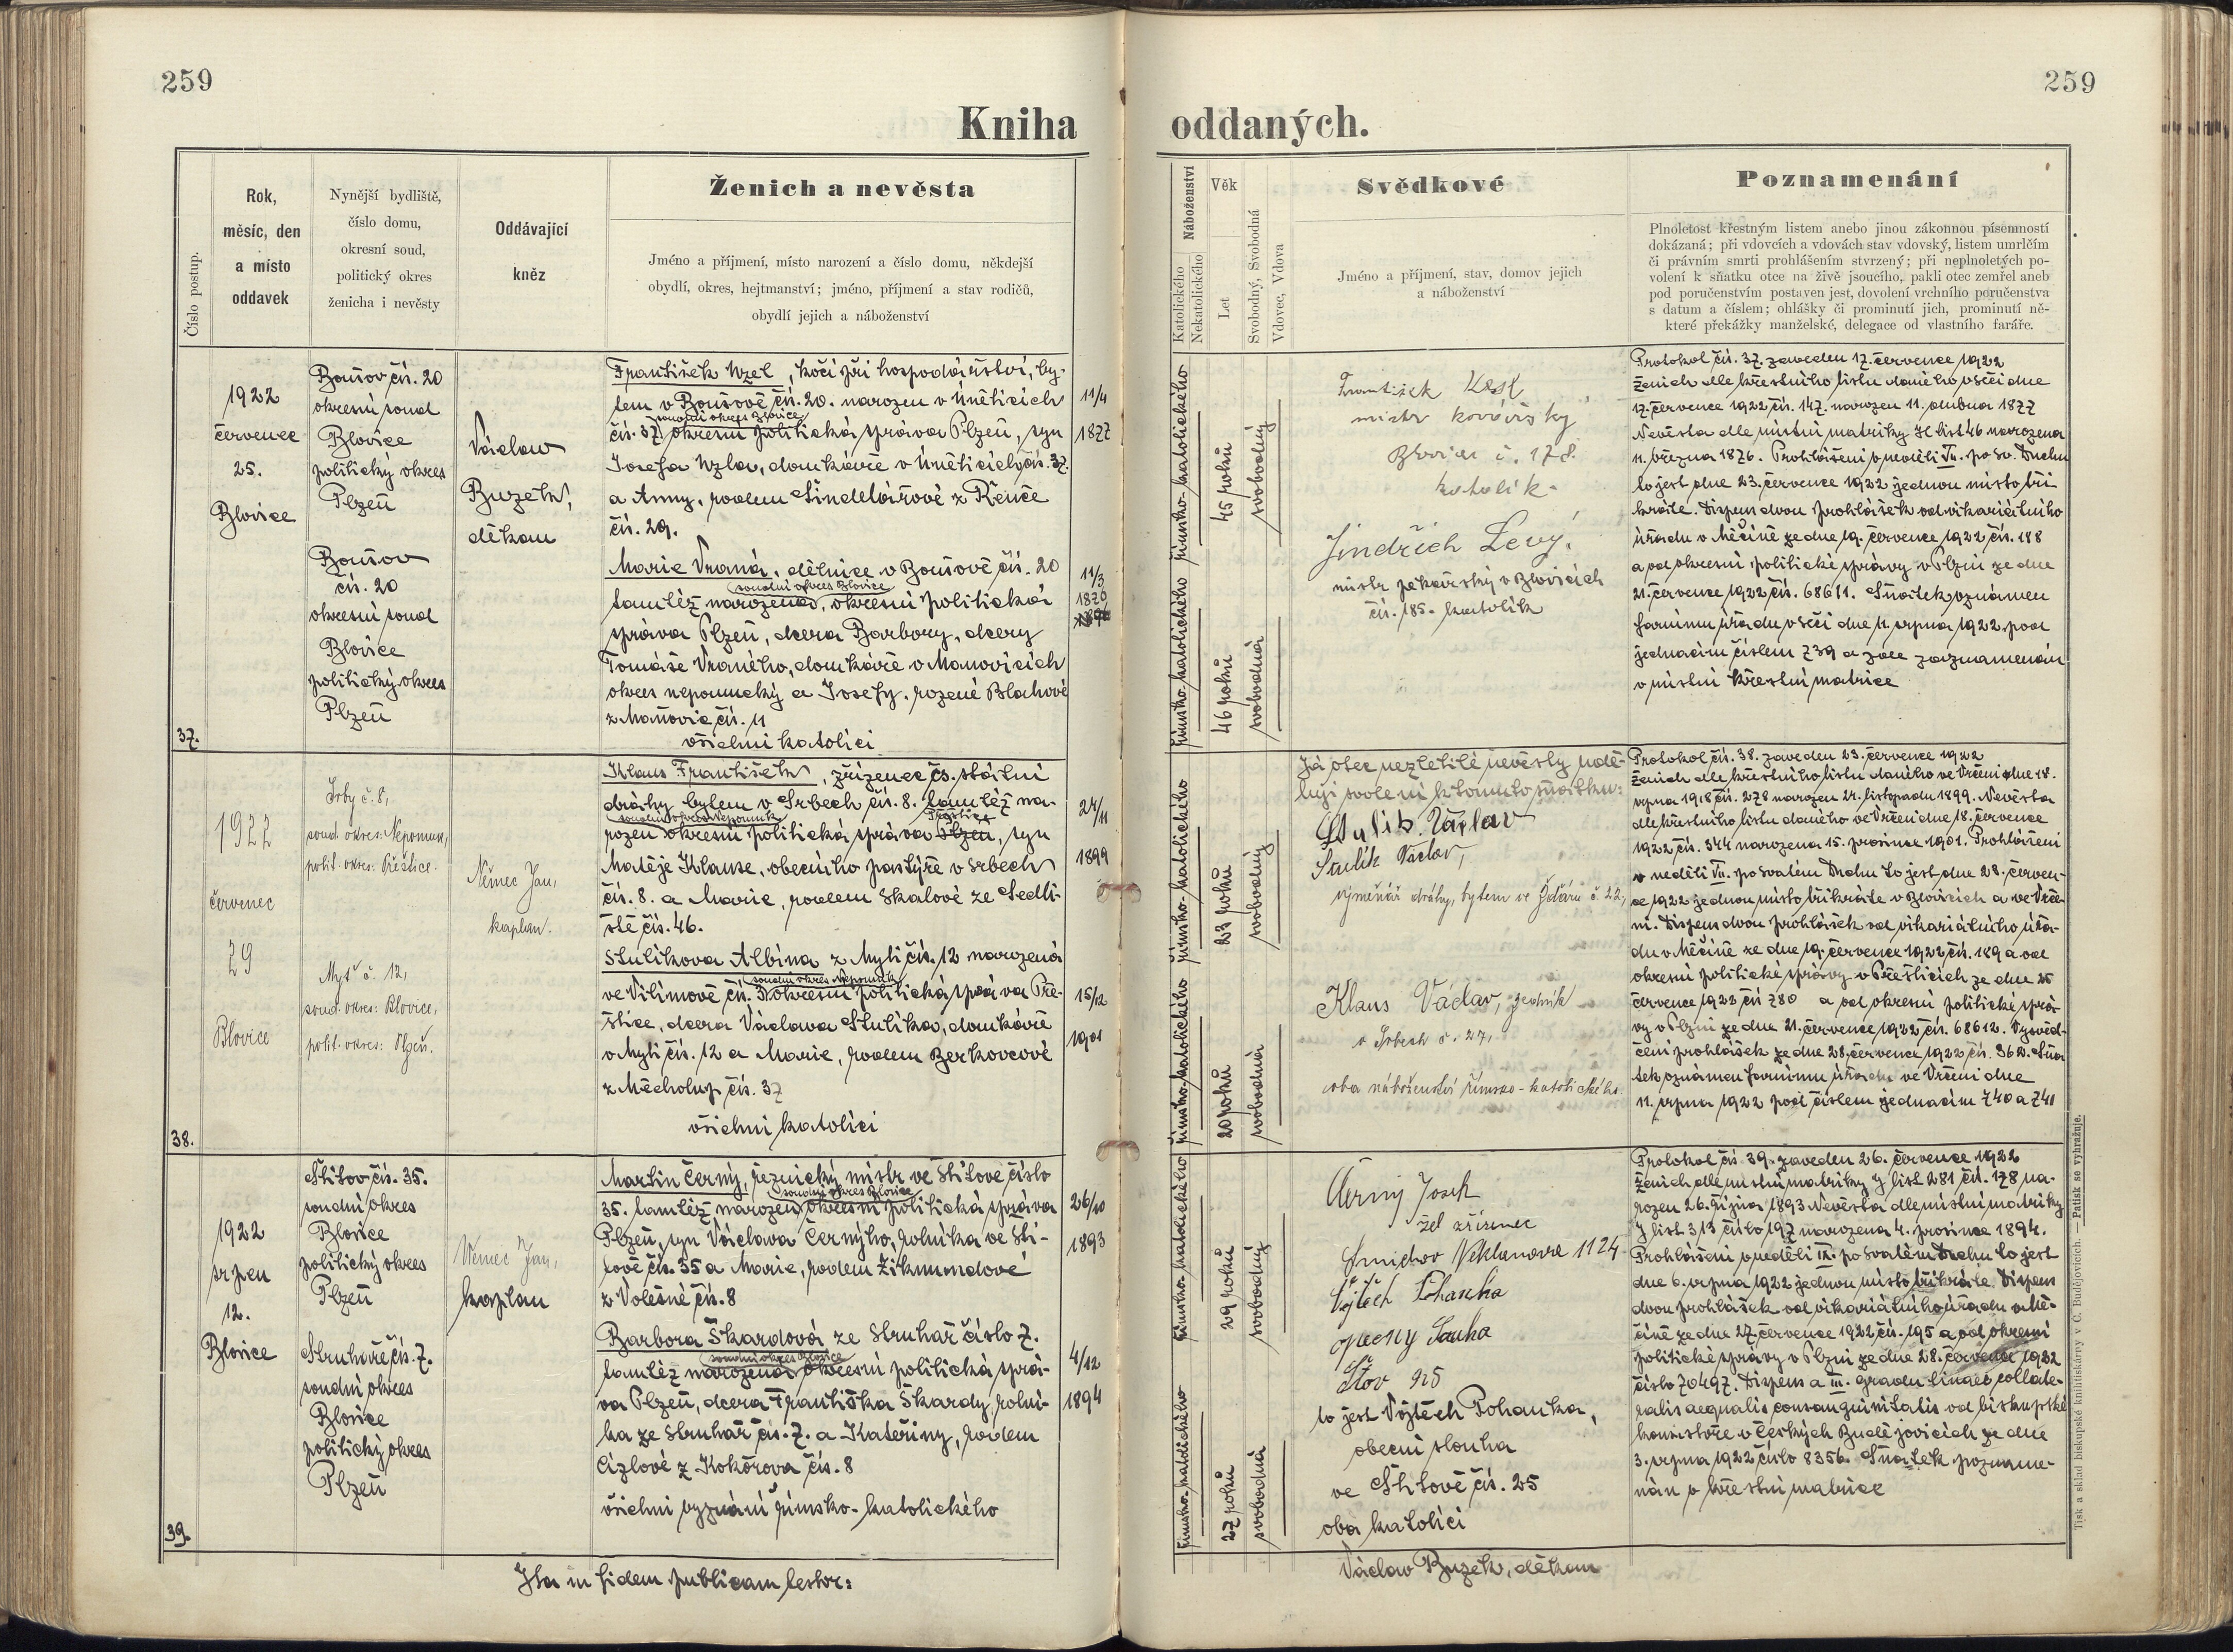 259
259
Kniha oddaných.
Číslo postup.
Rok,
měsíc, den
a místo
oddavek
Nynější bydliště,
číslo domu,
okresní soud,
politický okres
ženicha i nevěsty
Oddávající
kněz
Ženich a nevěsta
Jméno a příjmení, místo narození a číslo domu, někdejší
obydlí, okres, hejtmanství; jméno, příjmení a stav rodičů,
obydlí jejich a náboženství
Náboženství
Katolického
Nekatolického
Věk
Let
Svobodný, Svobodná
Vdovec, Vdova
Svědkové
Jméno a příjmení, stav, domov jejich
a náboženství
Poznamenání
Plnoletost křestným listem anebo jinou zákonnou písemností
dokázaná; při vdovcích a vdovách stav vdovský, listem umrlčím
či právním smrti prohlášením stvrzený; při neplnoletých po-
volení k sňatku otce na živě jsoucího, pakli otec zemřel aneb
pod poručenstvím postaven jest, dovolení vrchního poručenstva
s datum a číslem; ohlášky či prominutí jich, prominutí ně-
které překážky manželské, delegace od vlastního faráře.
37.
1922
července
25.
Blovice
Boušov čís. 20
okresní soud
Blovice
politický okres
Plzeň
Boušov
čís. 20
okresní soud
Blovice
politický okres
Plzeň
Václav
Buzek,
děkan
František Uzel, kočí při hospodářství, by-
tem v Boušově čís. 20. narozen v Úněticích
soudní okres Blovice
čís. 37. okresní politická správa Plzeň, syn
Josefa Uzla, domkáře v Úněticích čís. 37.
a Anny, rodem Šindelářové z Řenče
čís. 29.
11/4
1877
Marie Vraná, dělnice v Boušově čís. 20
soudní okres Blovice
tamtéž narozená, okresní politická
správa Plzeň, dcera Barbory, dcery
Tomáše Vraného, domkáře v Maňovicích
okres nepomucký a Josefy, rozené Blahové
z Maňovic čís. 11
všichni katolíci
11/3
1876
římsko-katolického
45 roků
svobodný
římsko-katolického
46 roků
svobodná
František
mistr kovářský
Blovice č. 178.
katolík.
Jindřich Levý.
mistr pekařský v Blovicích
čís. 185. katolík
Protokol čís. 37. zaveden 17. července 1922
Ženich dle křestního listu daného v Sečí dne
17. července 1922 čís. 147. narozen 11. dubna 1877
Nevěsta dle místní matriky H list 46 narozena
11. března 1876. Prohlášení v neděli VII. po sv. Duchu
to jest dne 23. července 1922 jednou místo tři-
kráte. Dispens dvou prohlášek od vikariátního
úřadu v Měčíně ze dne 19. července 1922 čís. 188
a od okresní politické správy v Plzni ze dne
21. července 1922 čís. 68611. Sňatek oznámen
farnímu úřadu v Sečí dne 11. srpna 1922 pod
jednacím číslem 739 a zde zaznamenán
v místní křestní matrice
38.
1922
červenec
29
Blovice
Srby č. 8,
soud. okres: Nepomuk,
polit. okres: Přeštice.
Myť č. 12,
soud. okres: Blovice,
polit. okres: Plzeň.
Němec Jan,
kaplan.
Klaus František, zřízenec čs. státní
dráhy bytem v Srbech čís. 8. tamtéž na-
soudní okres Nepomuk Přeštice
rozen okresní politická správa Plzeň, syn
Matěje Klause, obecního pastýře v Srbech
čís. 8. a Marie, rodem Skalové ze Sedli-
ště čís. 46.
24/11
1899
Stulíkova Albína z Mytí čís. 12 narozená
soudní okres Nepomuk
ve Vilímově čís. 3 okresní politická správa Pře-
štice, dcera Václava Stulíka, domkáře
v Mytí čís. 12 a Marie, rodem Berkovcové
z Měcholup čís. 37
všichni katolíci
15/12
1901
římsko-katolického
23 roků
svobodný
římsko-katolického
20 roků
svobodná
Já otec nezletilé nevěsty udě-
luji svolení k tomuto sňatku:
Stulík Václav
Stulík Václav,
výměnář dráhy, bytem ve Ždáru č. 22,
Klaus Václav, rolník
v Srbech č. 27,
oba náboženství římsko-katolického.
Protokol čís. 38. zaveden 23. července 1922
Ženich dle křestního listu daného ve Vrčeni dne 18.
srpna 1918 čís. 278 narozen 24. listopadu 1899. Nevěsta
dle křestního listu daného ve Vrčeni dne 18. července
1922 čís. 344 narozena 15. prosince 1901. Prohlášení
v neděli VII. po svatém Duchu to jest dne 23. červen-
ce 1922 jednou místo třikráte v Blovicích a ve Vrče-
ni. Dispens dvou prohlášek od vikariátního úřa-
du v Měčíně ze dne 19. července 1922 čís. 189 a od
okresní politické správy v Přešticích ze dne 25
července 1922 čís 780 a od okresní politické sprá-
vy v Plzni ze dne 21. července 1922 čís. 68612. Vysvěd-
čení prohlášek ze dne 28. července 1922 čís. 362. Sňa-
tek oznámen farnímu úřadu ve Vrčeni dne
11. srpna 1922 pod číslem jednacím 740 a 741
39.
1922
srpen
12.
Blovice
Štítov čís. 35.
soudní okres
Blovice
politický okres
Plzeň
Struhaře čís. 7.
soudní okres
Blovice
politický okres
Plzeň
Němec Jan,
kaplan
Martin Černý, řeznický mistr ve Štítově číslo
soudní okres Blovice
35. tamtéž narozen, okresní politická správa
Plzeň, syn Václava Černýho, rolníka ve Ští-
tově čís. 35 a Marie, rodem Zikmundové
z Volešné čís. 8
26/10
1893
Barbora Škardová ze Struhař číslo 7.
soudní okres Blovice
tamtéž narozená, okresní politická sprá-
va Plzeň, dcera Františka Škardy, rolní-
ka ze Struhař čís. 7. a Kateřiny, rodem
Cízlové z Kokořova čís. 8
všichni vyznání římsko-katolického
4/12
1894
římsko-katolického
29 roků
svobodný
římsko-katolického
27 roků
svobodná
Černý Josef
žel zřízenec
Smíchov Neklanova 1124
Vojtěch Pohanka
opecny Slouha
Štov 925
to jest Vojtěch Pohanka,
obecní slouha
ve Štítově čís. 25
oba katolíci
Protokol čís 39. zaveden 26. července 1922
Ženich dle místní matriky J list 281 čís. 178 na-
rozen 26. října 1893 Nevěsta dle místní matriky
J list 313 číslo 197 narozena 4. prosince 1894.
Prohlášení v neděli IX. po svatém Duchu to jest
dne 6. srpna 1922 jednou místo třikráte. Dispens
dvou prohlášek od vikariátního úřadu v Mě-
číně ze dne 27. července 1922 čís. 195 a od okresní
politické správy v Plzni ze dne 28. července 1922
číslo 70497. Dispens a III. gradu lineae collate-
ralis aequalis consanguinitatis od biskupské
konsistoře v Českých Budějovicích ze dne
3. srpna 1922 číslo 8356. Sňatek pozname-
nán v křestní matrice
Ita in fidem publicam testor:
Václav Buzek, děkan
Tisk a sklad biskupské knihtiskárny v Č. Budějovicích. — Patisk se vyhražuje.